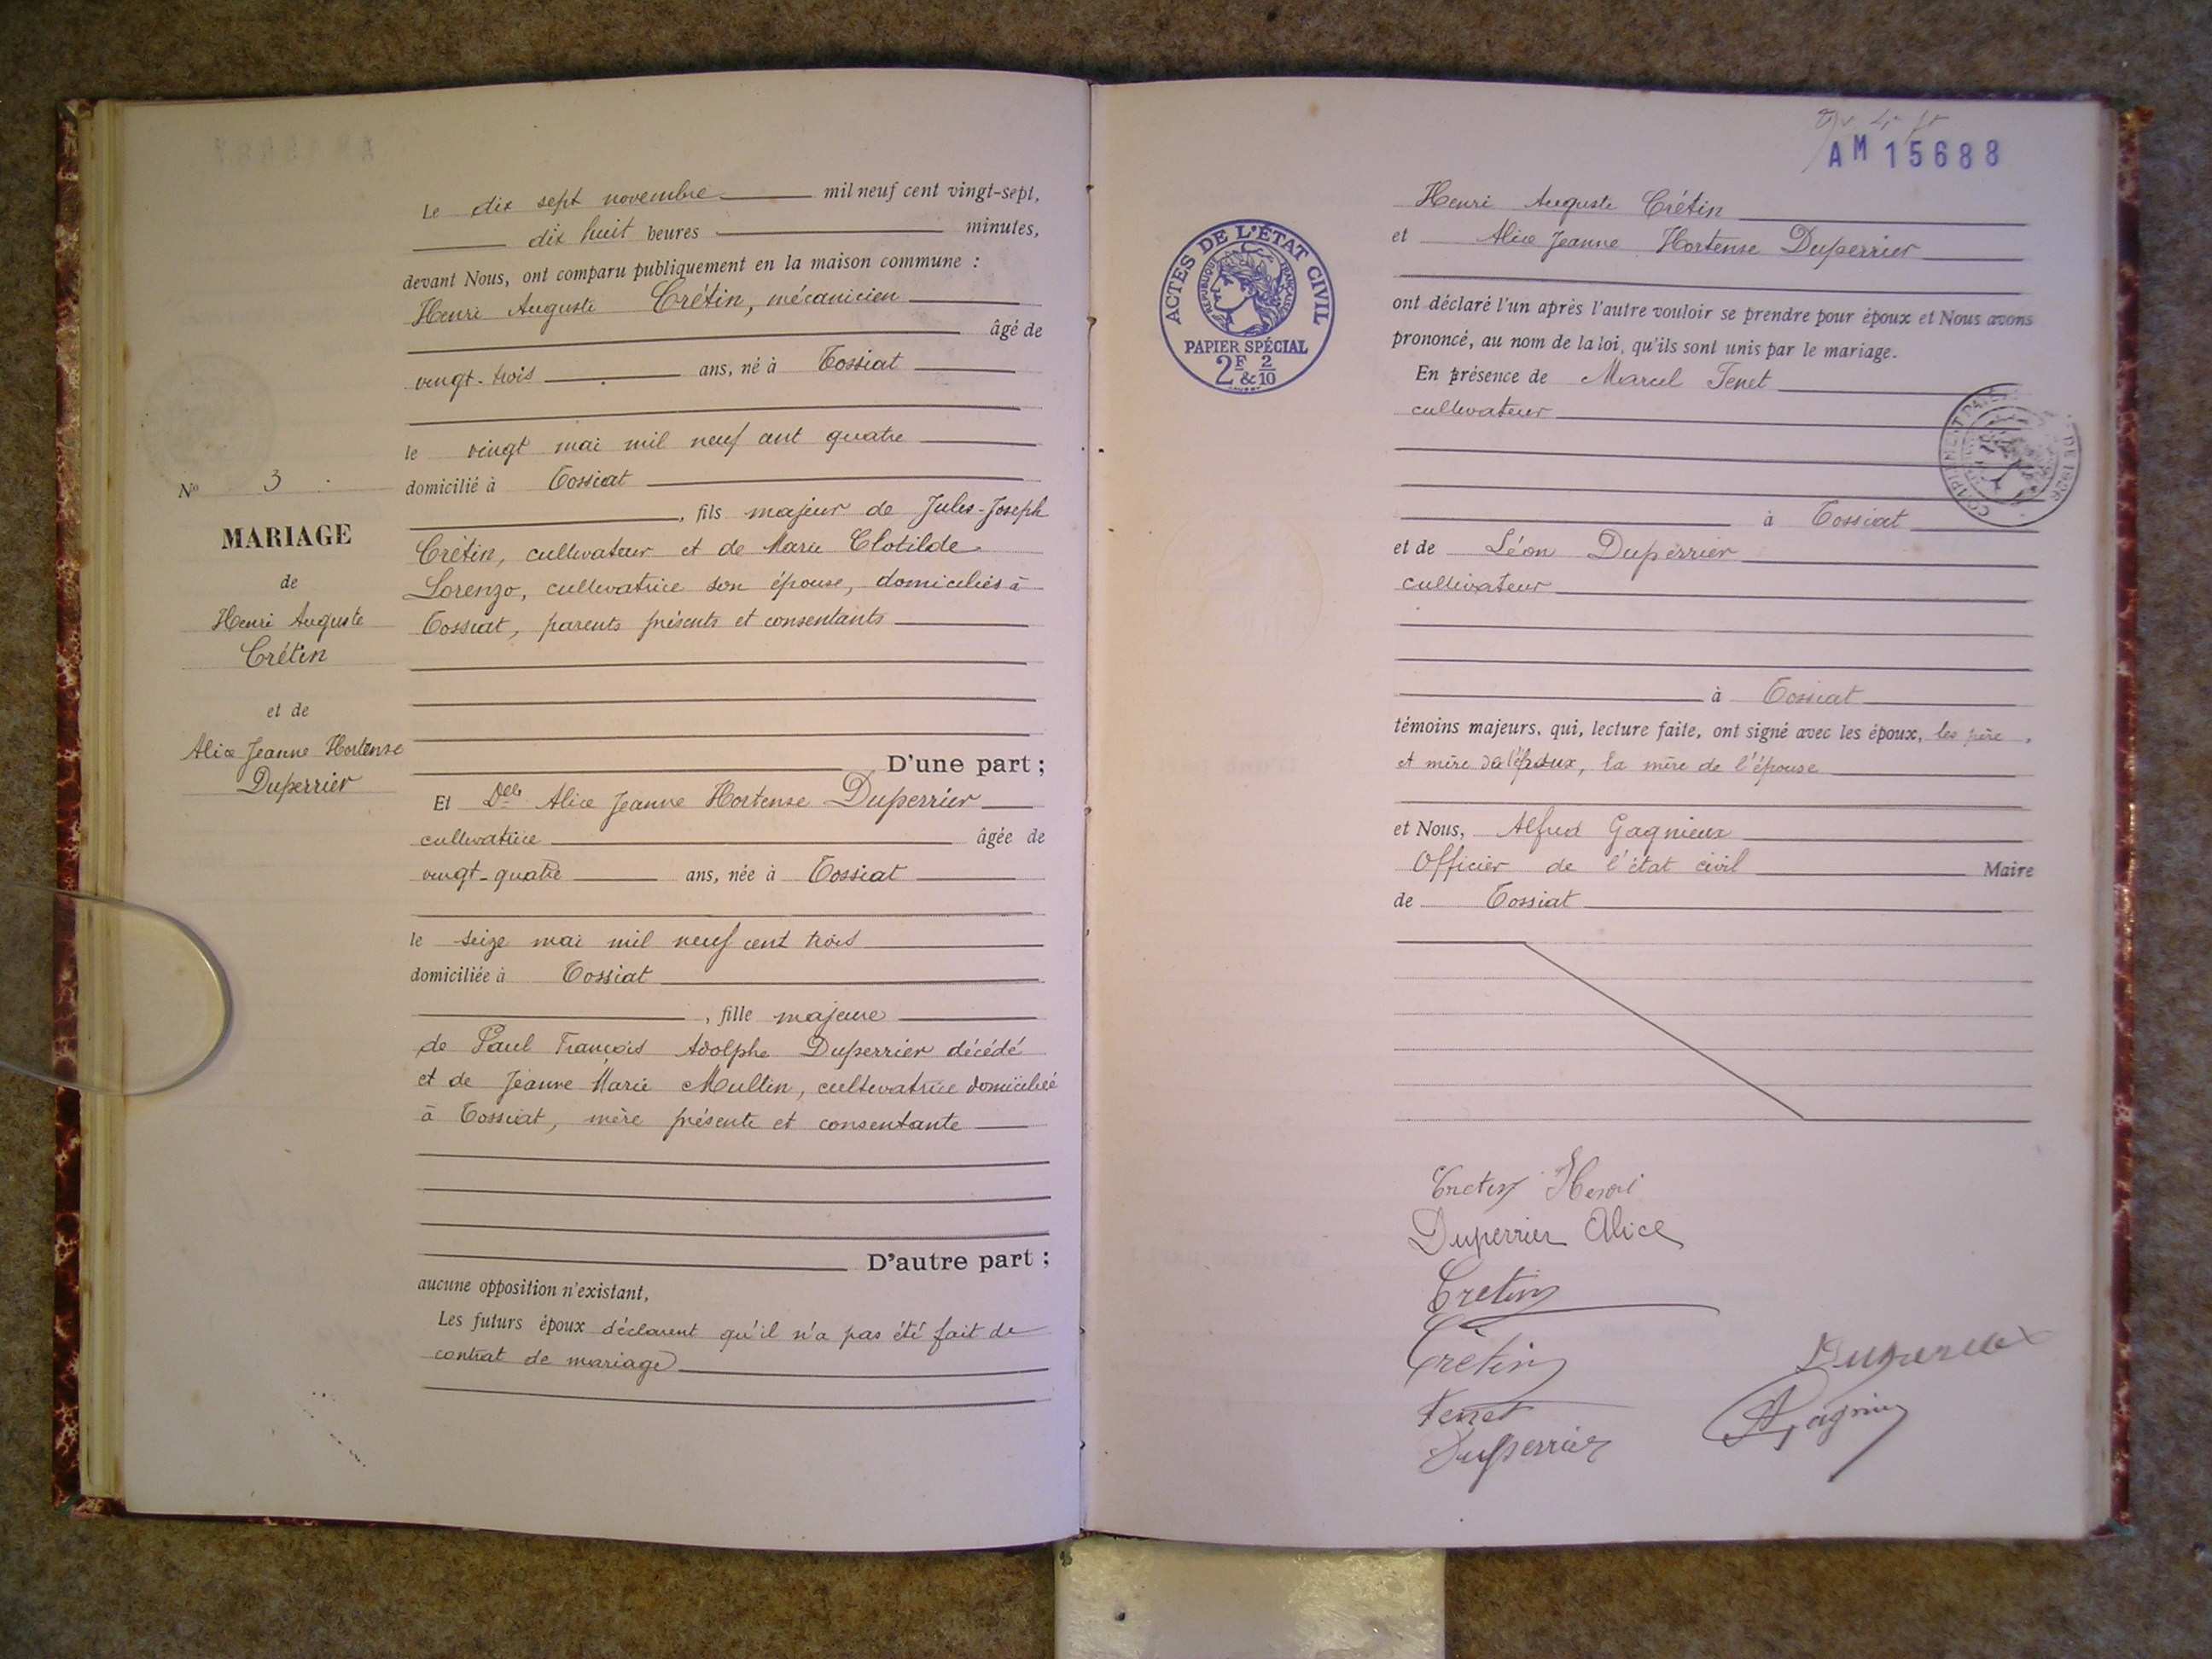 Le dix sept novembre mil neuf cent vingt-sept,
dix huit heures minutes,
devant Nous, ont comparu publiquement en la maison commune :
Henri Auguste Crétin, mécanicien
âgé de
vingt-trois ans, né à Tossiat
le vingt mai mil neuf cent quatre
domicilié à Tossiat
, fils majeur de Jules-Joseph
Crétin, cultivateur et de Marie Clotilde
Lorenzo, cultivatrice son épouse, domiciliés à
Tossiat, parents présents et consentants
D'une part ;
Nº 3
MARIAGE
de
Henri Auguste
Crétin
et de
Alice Jeanne Hortense
Duperrier
Et Delle Alice Jeanne Hortense Duperrier
cultivatrice âgée de
vingt-quatre ans, née à Tossiat
le seize mai mil neuf cent trois
domiciliée à Tossiat
, fille majeure
de Paul François Adolphe Duperrier décédé
et de Jeanne Marie Multin, cultivatrice domiciliée
à Tossiat, mère présente et consentante
D'autre part ;
aucune opposition n'existant,
Les futurs époux déclarent qu'il n'a pas été fait de
contrat de mariage
AM 15688
ACTES DE L'ÉTAT CIVIL
RÉPUBLIQUE FRANÇAISE
PAPIER SPÉCIAL
2F & 2/10
Henri Auguste Crétin
et Alice Jeanne Hortense Duperrier
ont déclaré l'un après l'autre vouloir se prendre pour époux et Nous avons
prononcé, au nom de la loi, qu'ils sont unis par le mariage.
En présence de Marcel Tenet
cultivateur
à Tossiat
et de Léon Duperrier
cultivateur
à Tossiat
témoins majeurs, qui, lecture faite, ont signé avec les époux, les père
et mère de l'époux, la mère de l'épouse
et Nous, Alfred Gagnieux
Officier de l'état civil Maire
de Tossiat
Cretin Henri
Duperrier Alice
Cretin
Cretin
Tenet
Duperrier